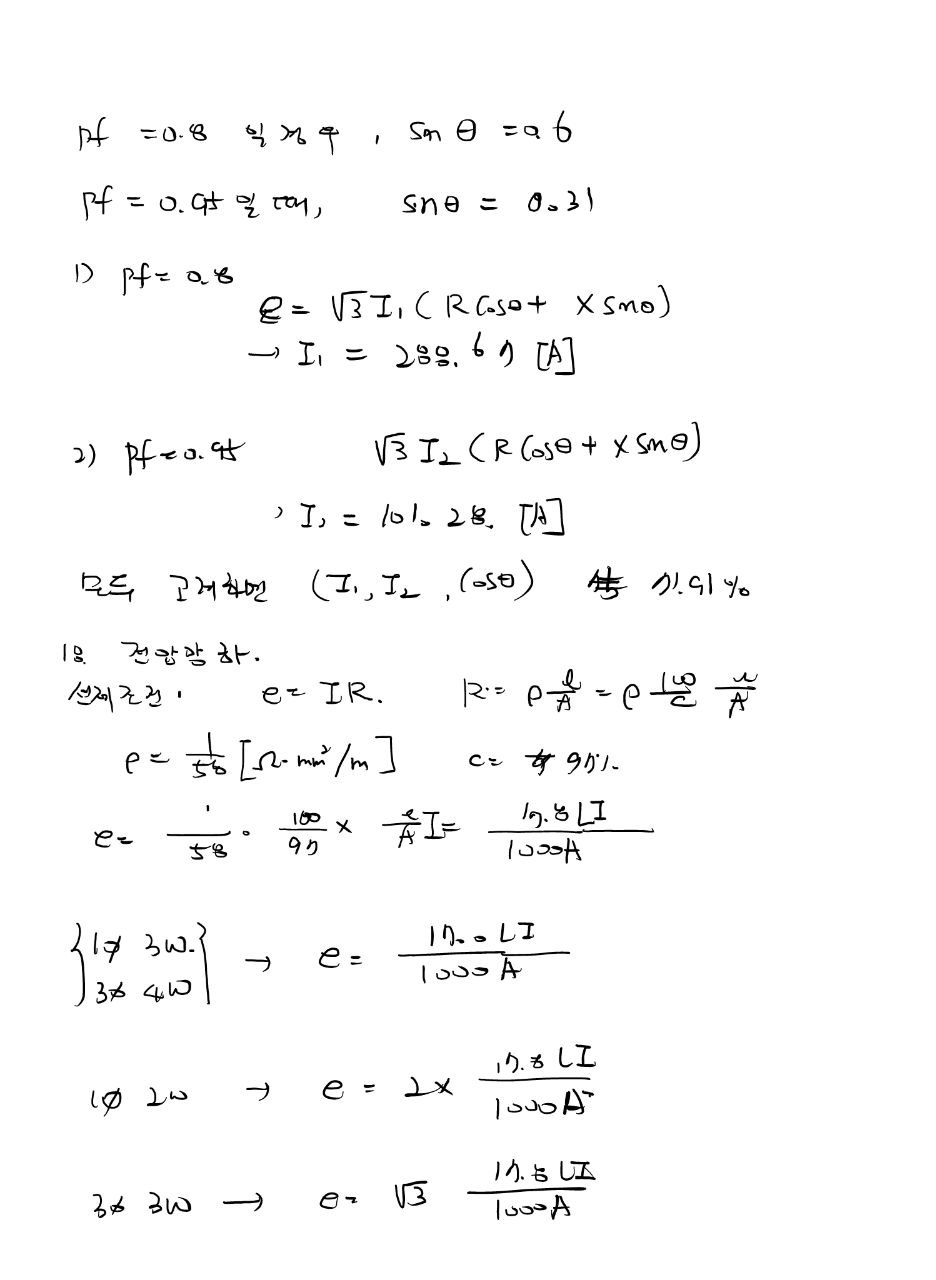 pf = 0.8 일 경우 , sin θ = 0.6
pf = 0.95 일 때, sinθ = 0.31
1) pf = 0.8
e = √3 I₁ ( R cosθ + X sinθ)
→ I₁ = 288.67 [A]
2) pf = 0.95 √3 I₂ ( R cosθ + X sinθ)
I₂ = 101.28. [A]
모두 고려하면 (I₁, I₂ , cosθ) 71.91%
18. 전압강하.
선제조건. e = IR. R = ρ l/A = ρ 100/C l/A
ρ = 1/58 [Ω·mm²/m] C = 97%
e = 1/58 · 100/97 × l/A I = 17.8LI/1000A
{1φ 3W. 3φ 4W} → e = 17.8 LI/1000A
1φ 2W → e = 2× 17.8 LI/1000A
3φ 3W → e = √3 17.8 LI/1000A